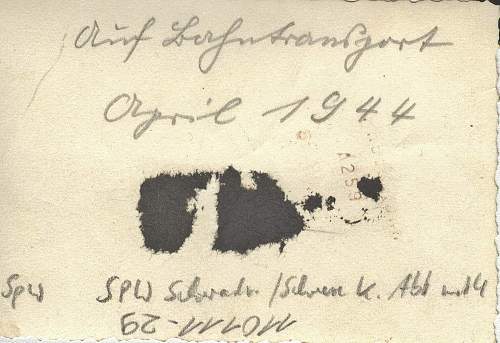 Auf Bahntransport
April 1944
A259
Spw SPW Schwadr. / Schwere K. Abt
110111-29